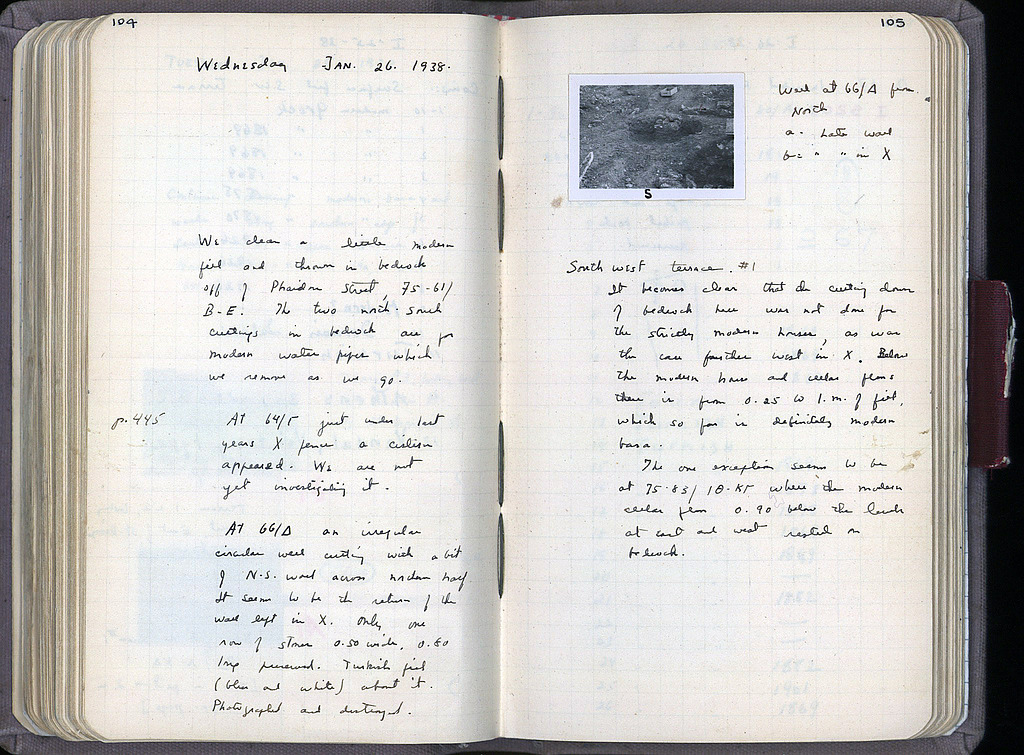 104
Wednesday JAN. 26. 1938.
We clean a little modern
fill and thrown in bedrock
off of Phaidon Street, 75-61/
B-E. The two north-south
cuttings in bedrock are for
modern water pipes which
we remove as we go.
p. 445
At 64/Γ just under last
years X fence a cistern
appeared. We are not
yet investigating it.
At 66/Δ an irregular
circular well cutting with a bit
of N-S. wall across northern half
It seems to be the return of the
wall left in X. Only one
row of stones 0.50 wide, 0.80
long preserved. Turkish fill
(blue and white) about it.
Photographed and destroyed.
105
Wall at 66/Δ from
North
a- Late wall
b= " " in X
S
South west terrace. #1
It becomes clear that the cutting down
of bedrock here was not done for
the strictly modern houses, as was
the case further west in X. Below
the modern house and cellar floors
there is from 0.25 to 1. m. of fill,
which so far is definitely modern
The one exception seems to be
at 75-83/ where the modern
cellar floor 0.90 below the levels
at east and west rested on
bedrock.